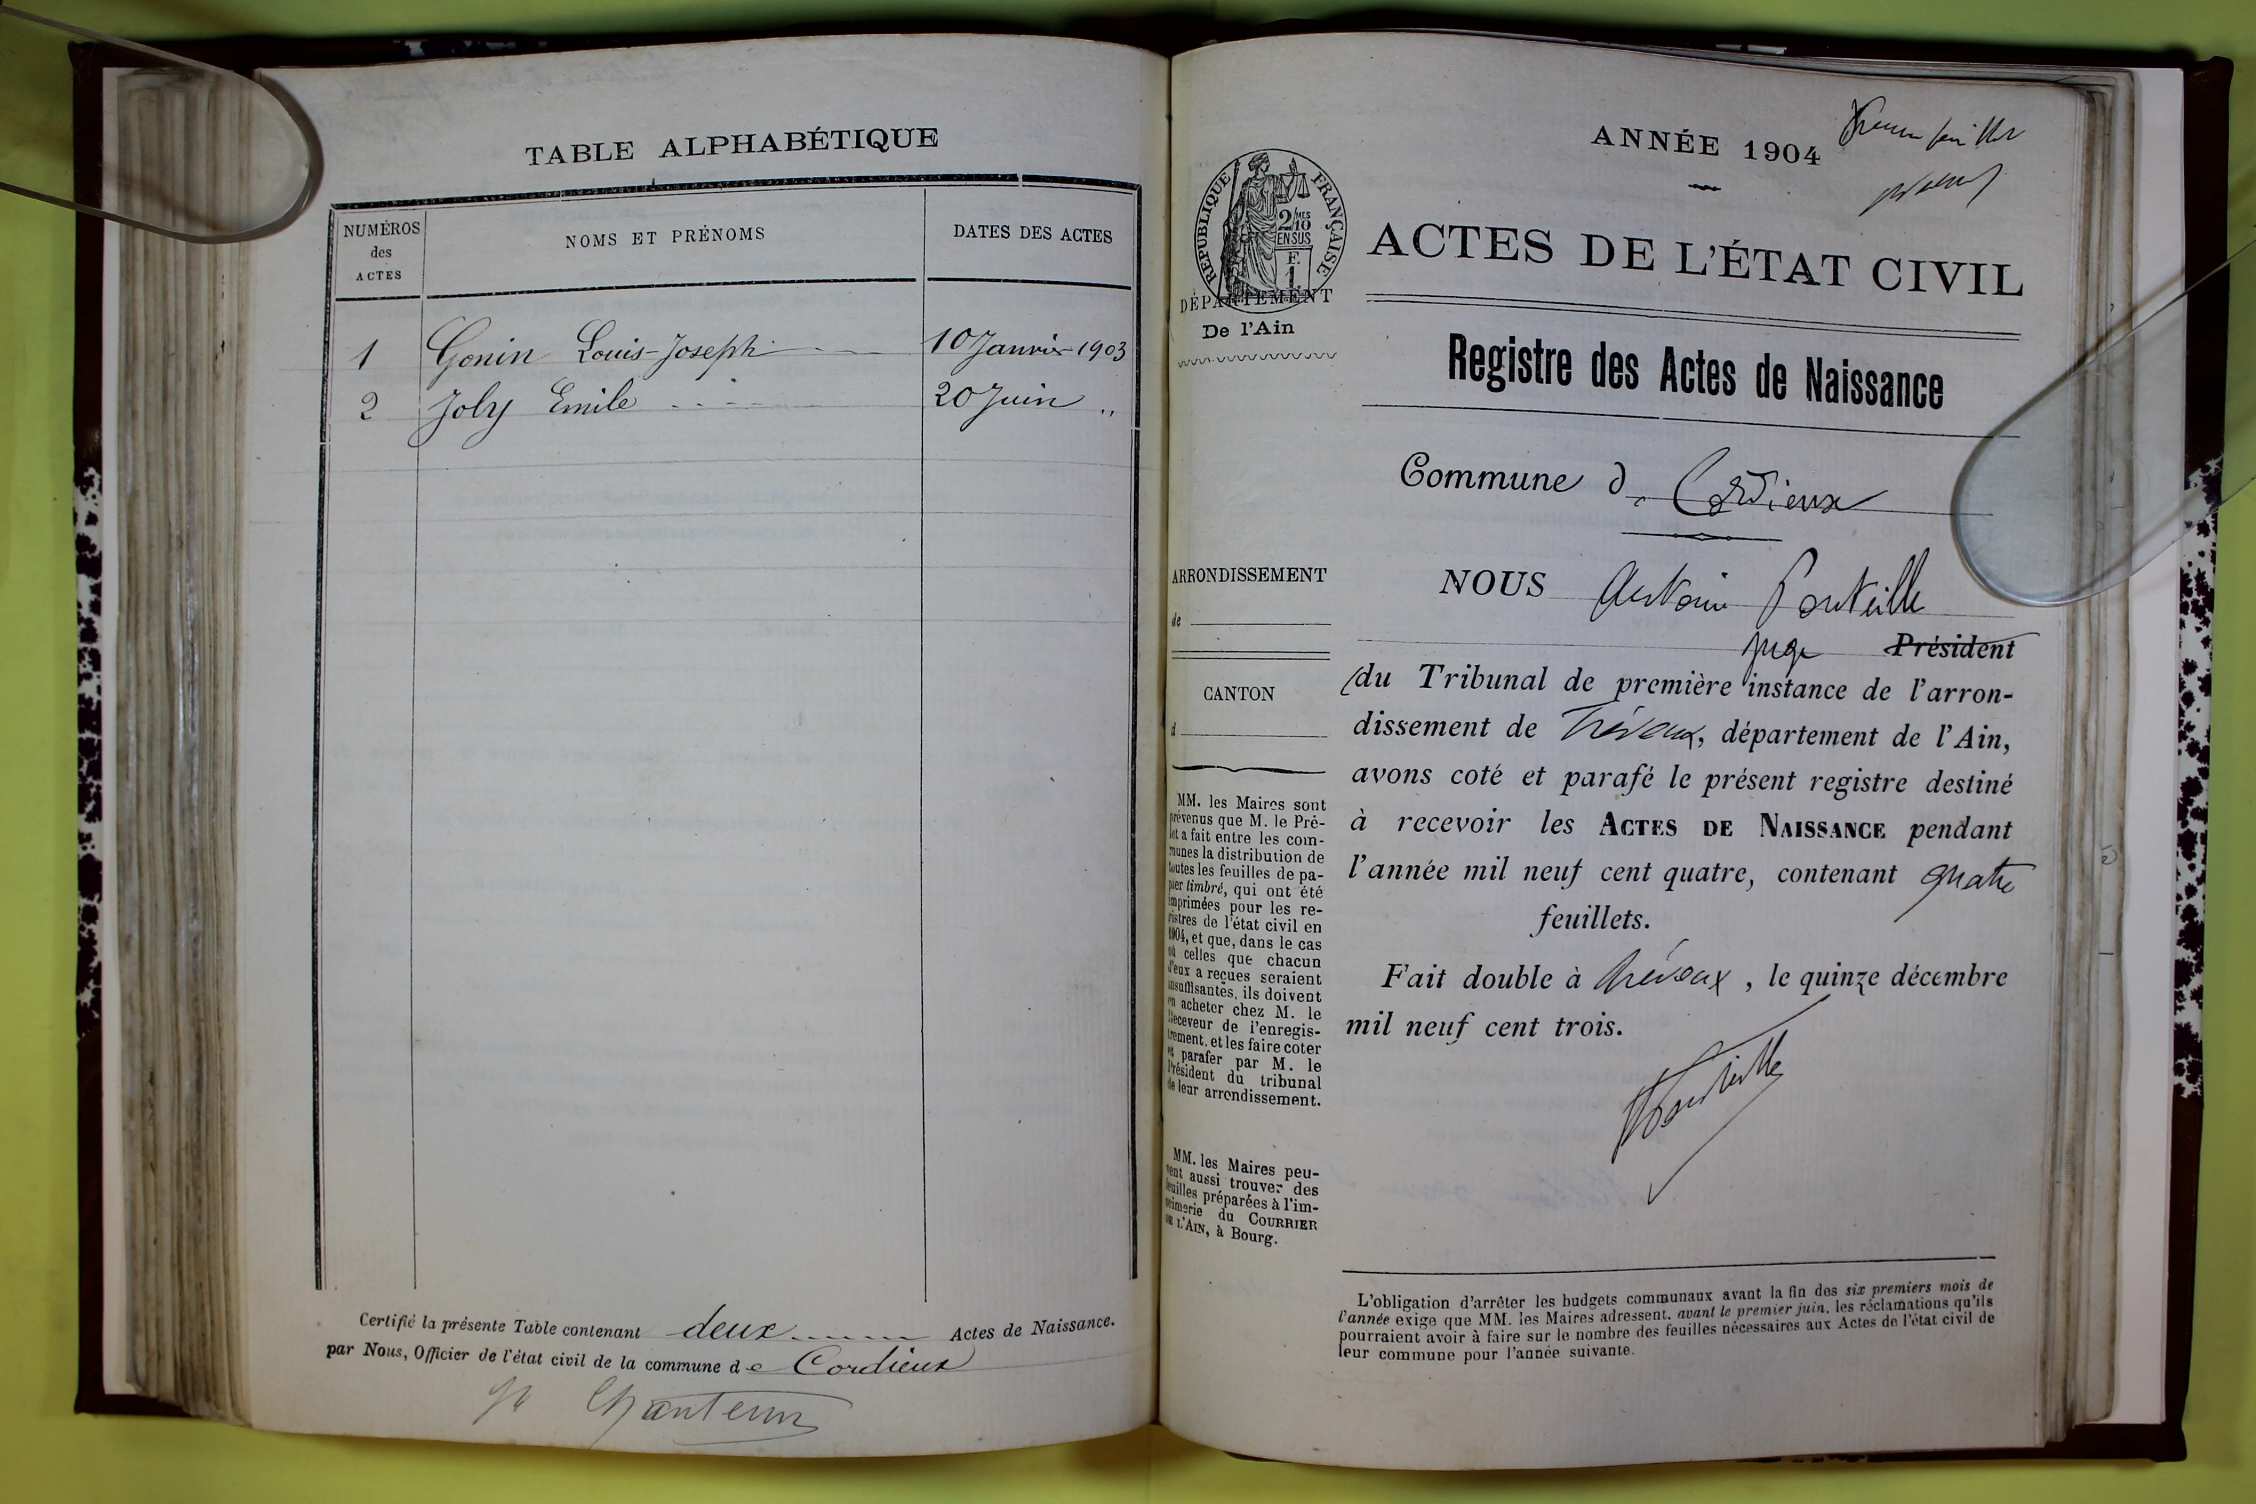 TABLE ALPHABÉTIQUE
NUMÉROS
des
ACTES
NOMS ET PRÉNOMS
DATES DES ACTES
1 Gonin Louis-Joseph 10 Janvier 1903
2 Joly Emile 20 Juin "
Certifié la présente Table contenant deux Actes de Naissance.
par Nous, Officier de l'état civil de la commune de Cordieux
ANNÉE 1904
RÉPUBLIQUE FRANÇAISE
2/10MES
EN SUS
F.
1
DÉPARTEMENT
De l'Ain
ACTES DE L'ÉTAT CIVIL
Registre des Actes de Naissance
Commune de Cordieux
ARRONDISSEMENT
de
CANTON
d
MM. les Maires sont
prévenus que M. le Pré-
fet a fait entre les com-
munes la distribution de
toutes les feuilles de pa-
pier timbré, qui ont été
imprimées pour les re-
gistres de l'état civil en
1904, et que, dans le cas
où celles que chacun
d'eux a reçues seraient
insuffisantes, ils doivent
en acheter chez M. le
Receveur de l'enregis-
trement, et les faire coter
et parafer par M. le
Président du tribunal
de leur arrondissement.
MM. les Maires peu-
vent aussi trouver des
feuilles préparées à l'im-
primerie du COURRIER
DE L'AIN, à Bourg.
NOUS Antoine Ponteille
juge Président
du Tribunal de première instance de l'arron-
dissement de Trévoux, département de l'Ain,
avons coté et parafé le présent registre destiné
à recevoir les ACTES DE NAISSANCE pendant
l'année mil neuf cent quatre, contenant quatre
feuillets.
Fait double à Trévoux, le quinze décembre
mil neuf cent trois.
Ponteille
L'obligation d'arrêter les budgets communaux avant la fin des six premiers mois de
l'année exige que MM. les Maires adressent, avant le premier juin, les réclamations qu'ils
pourraient avoir à faire sur le nombre des feuilles nécessaires aux Actes de l'état civil de
leur commune pour l'année suivante.